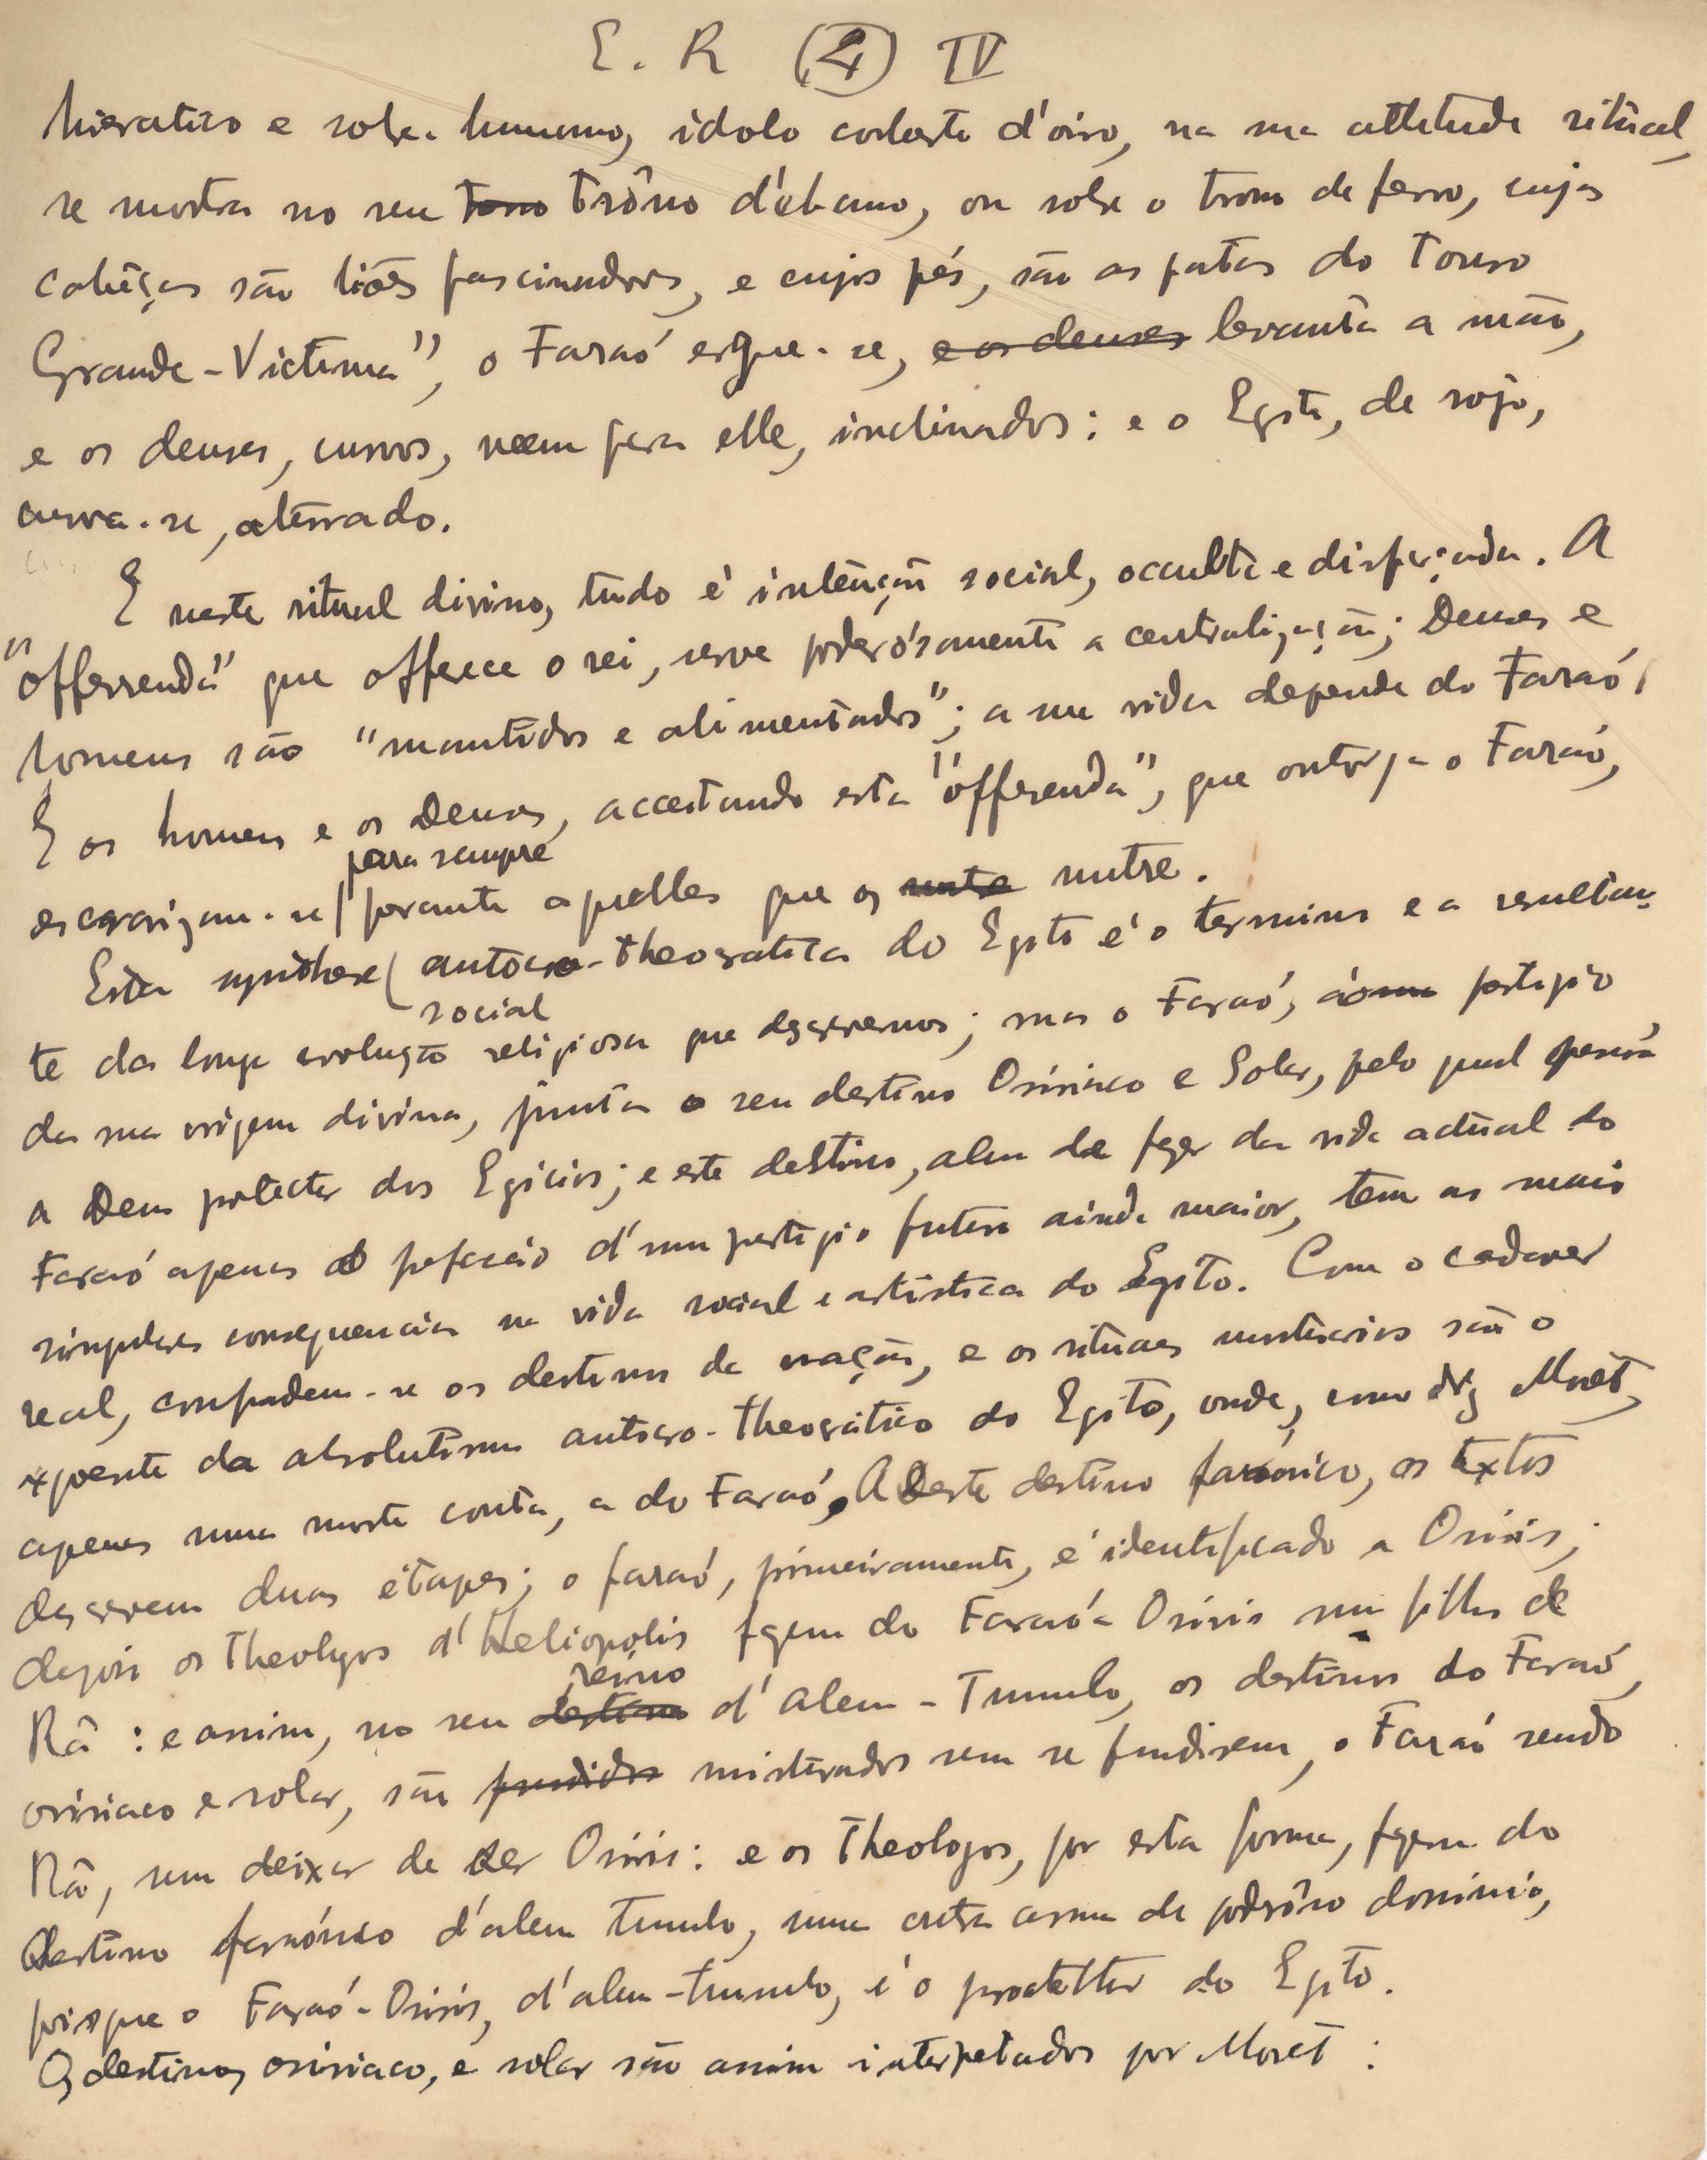 E. R (4) IV
hieratico e sobre-humano, idolo coberto d'oiro, na sua attitude ritual,
se mostra no seu Trôno d'ébano, ou sobre o trono de ferro, cujas
cabêças são liões fascinadores, e cujos pés, são as patas do Touro
Grande-Victima", o Faraó ergue-se, e os deuses levanta a mão,
e os deuses, curvos, veem para elle, inclinados: e o Egito, de rojo,
curva-se, aterrado.
E neste ritual divino, tudo é intenção social, occulta e disfarçada. A
"offerrenda" que offerece o rei, serve poderósamente a centralização; Deuses e
homens são "mantidos e alimentados"; a sua vida depende do Faraó,
E os homens e os Deuses, acceitando esta "offerenda", que outorga o Faraó,
para sempre
escravizam-se perante aquelles que os nutre.
Esta synthese autocro-theocratica do Egito é o terminus e a resultan-
social
te da longa evolução religiosa que descrevemos; mas o Faraó, prestigio
da sua origem divina, junta o seu destino Osiriaco e Solar, pelo qual
a Deus protector dos Egicios; e este destino, alem de fazer da vida actual do
Faraó apenas o prefacio d'um prestigio futuro ainda maior, tem as mais
singulares consequencias na vida social e artistica do Egito. Com o cadaver
real, confundem-se os destinos da nação, e os rituaes são o
expoente da absolutismo autocro-theocrático do Egito, onde, como diz Moret,
apenas uma morte conta, a do Faraó. A Deste destino faraónico, os textos
descrevem duas étapes; o faraó, primeiramente, é identificado a Osiris;
depois os Theologos d'Heliopolis fazem do Faraó-Osiris um filho de
reino
Râ: e assim, no seu destino d'alem-Tumulo, os destinos do Faraó,
osiriaco e solar, são fundidos misturados sem se fundirem, o Faraó sendo
Râ, sem deixar de ser Osiris: e os Theologos, por esta forma, fazem do
destino faraónico d'alem tumulo, uma outra arma de podrôso dominio,
poisque o Faraó-Osiris, d'alem-tumulo, é o protetter do Egito.
Os destinos osiriaco, e solar são assim interpetados por Moret: